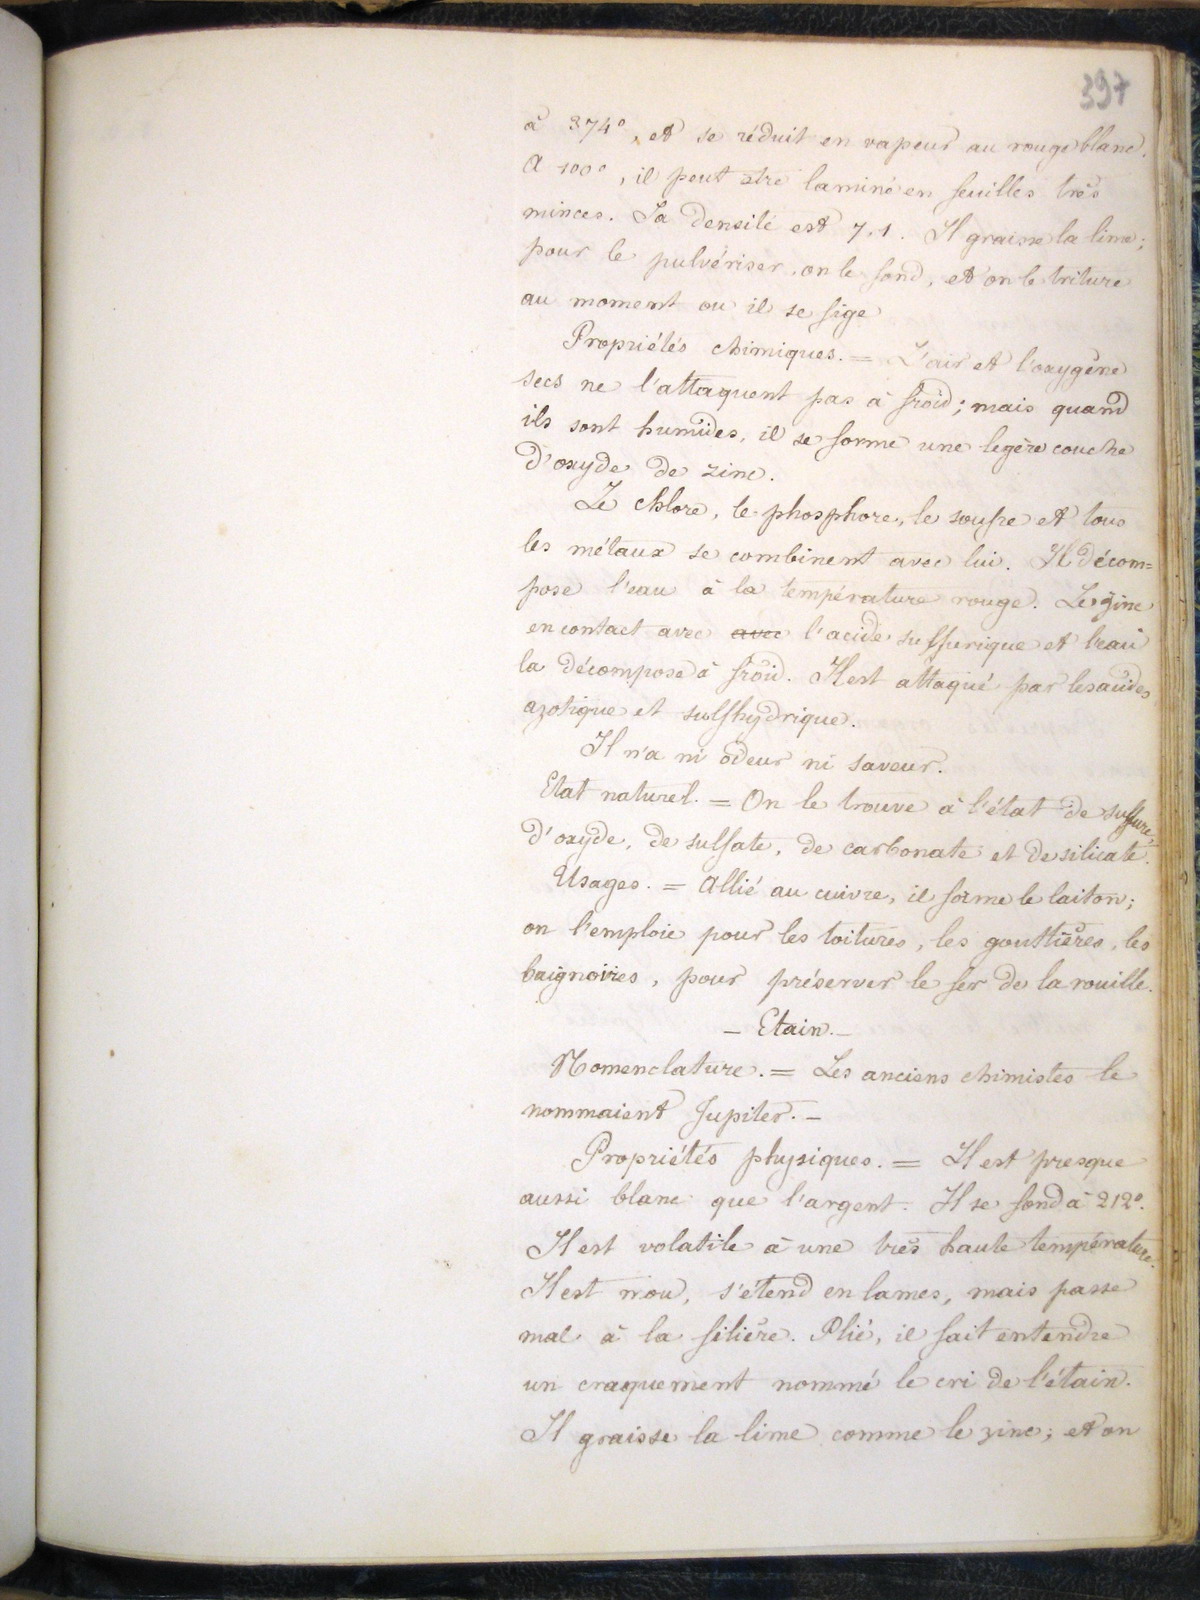 397
à 374°, et se réduit en vapeur au rouge blanc.
A 100°, il peut etre laminé en feuilles très
minces. Sa densité est 7,1. Il graisse la lime;
pour le pulvériser, on le fond, et on le triture
au moment ou il se fige
Propriétés chimiques. = L'air et l'oxygène
secs ne l'attaquent pas à froid; mais quand
ils sont humides, il se forme une legère couche
d'oxyde de zinc.
Le chlore, le phosphore, le soufre et tous
les métaux se combinent avec lui. Il décom=
pose l'eau à la température rouge. Le zinc
en contact avec avec l'acide sulfurique et l'eau
la décompose à froid. Il est attaqué par les acides
azotique et sulfhydrique.
Il n'a ni odeur ni saveur.
Etat naturel. = On le trouve à l'état de sulfure,
d'oxyde, de sulfate, de carbonate et de silicate.
Usages. = Allié au cuivre, il forme le laiton;
on l'emploie pour les toitures, les gouttières, les
baignoires, pour préserver le fer de la rouille.
– Etain. –
Nomenclature. = Les anciens chimistes le
nommaient Jupiter. –
Propriétés physiques. = Il est presque
aussi blanc que l'argent. Il se fond à 212°.
Il est volatile à une très haute température.
Il est mou, s'étend en lames, mais passe
mal à la filière. Plié, il fait entendre
un craquement nommé le cri de l'étain.
Il graisse la lime comme le zinc; et on